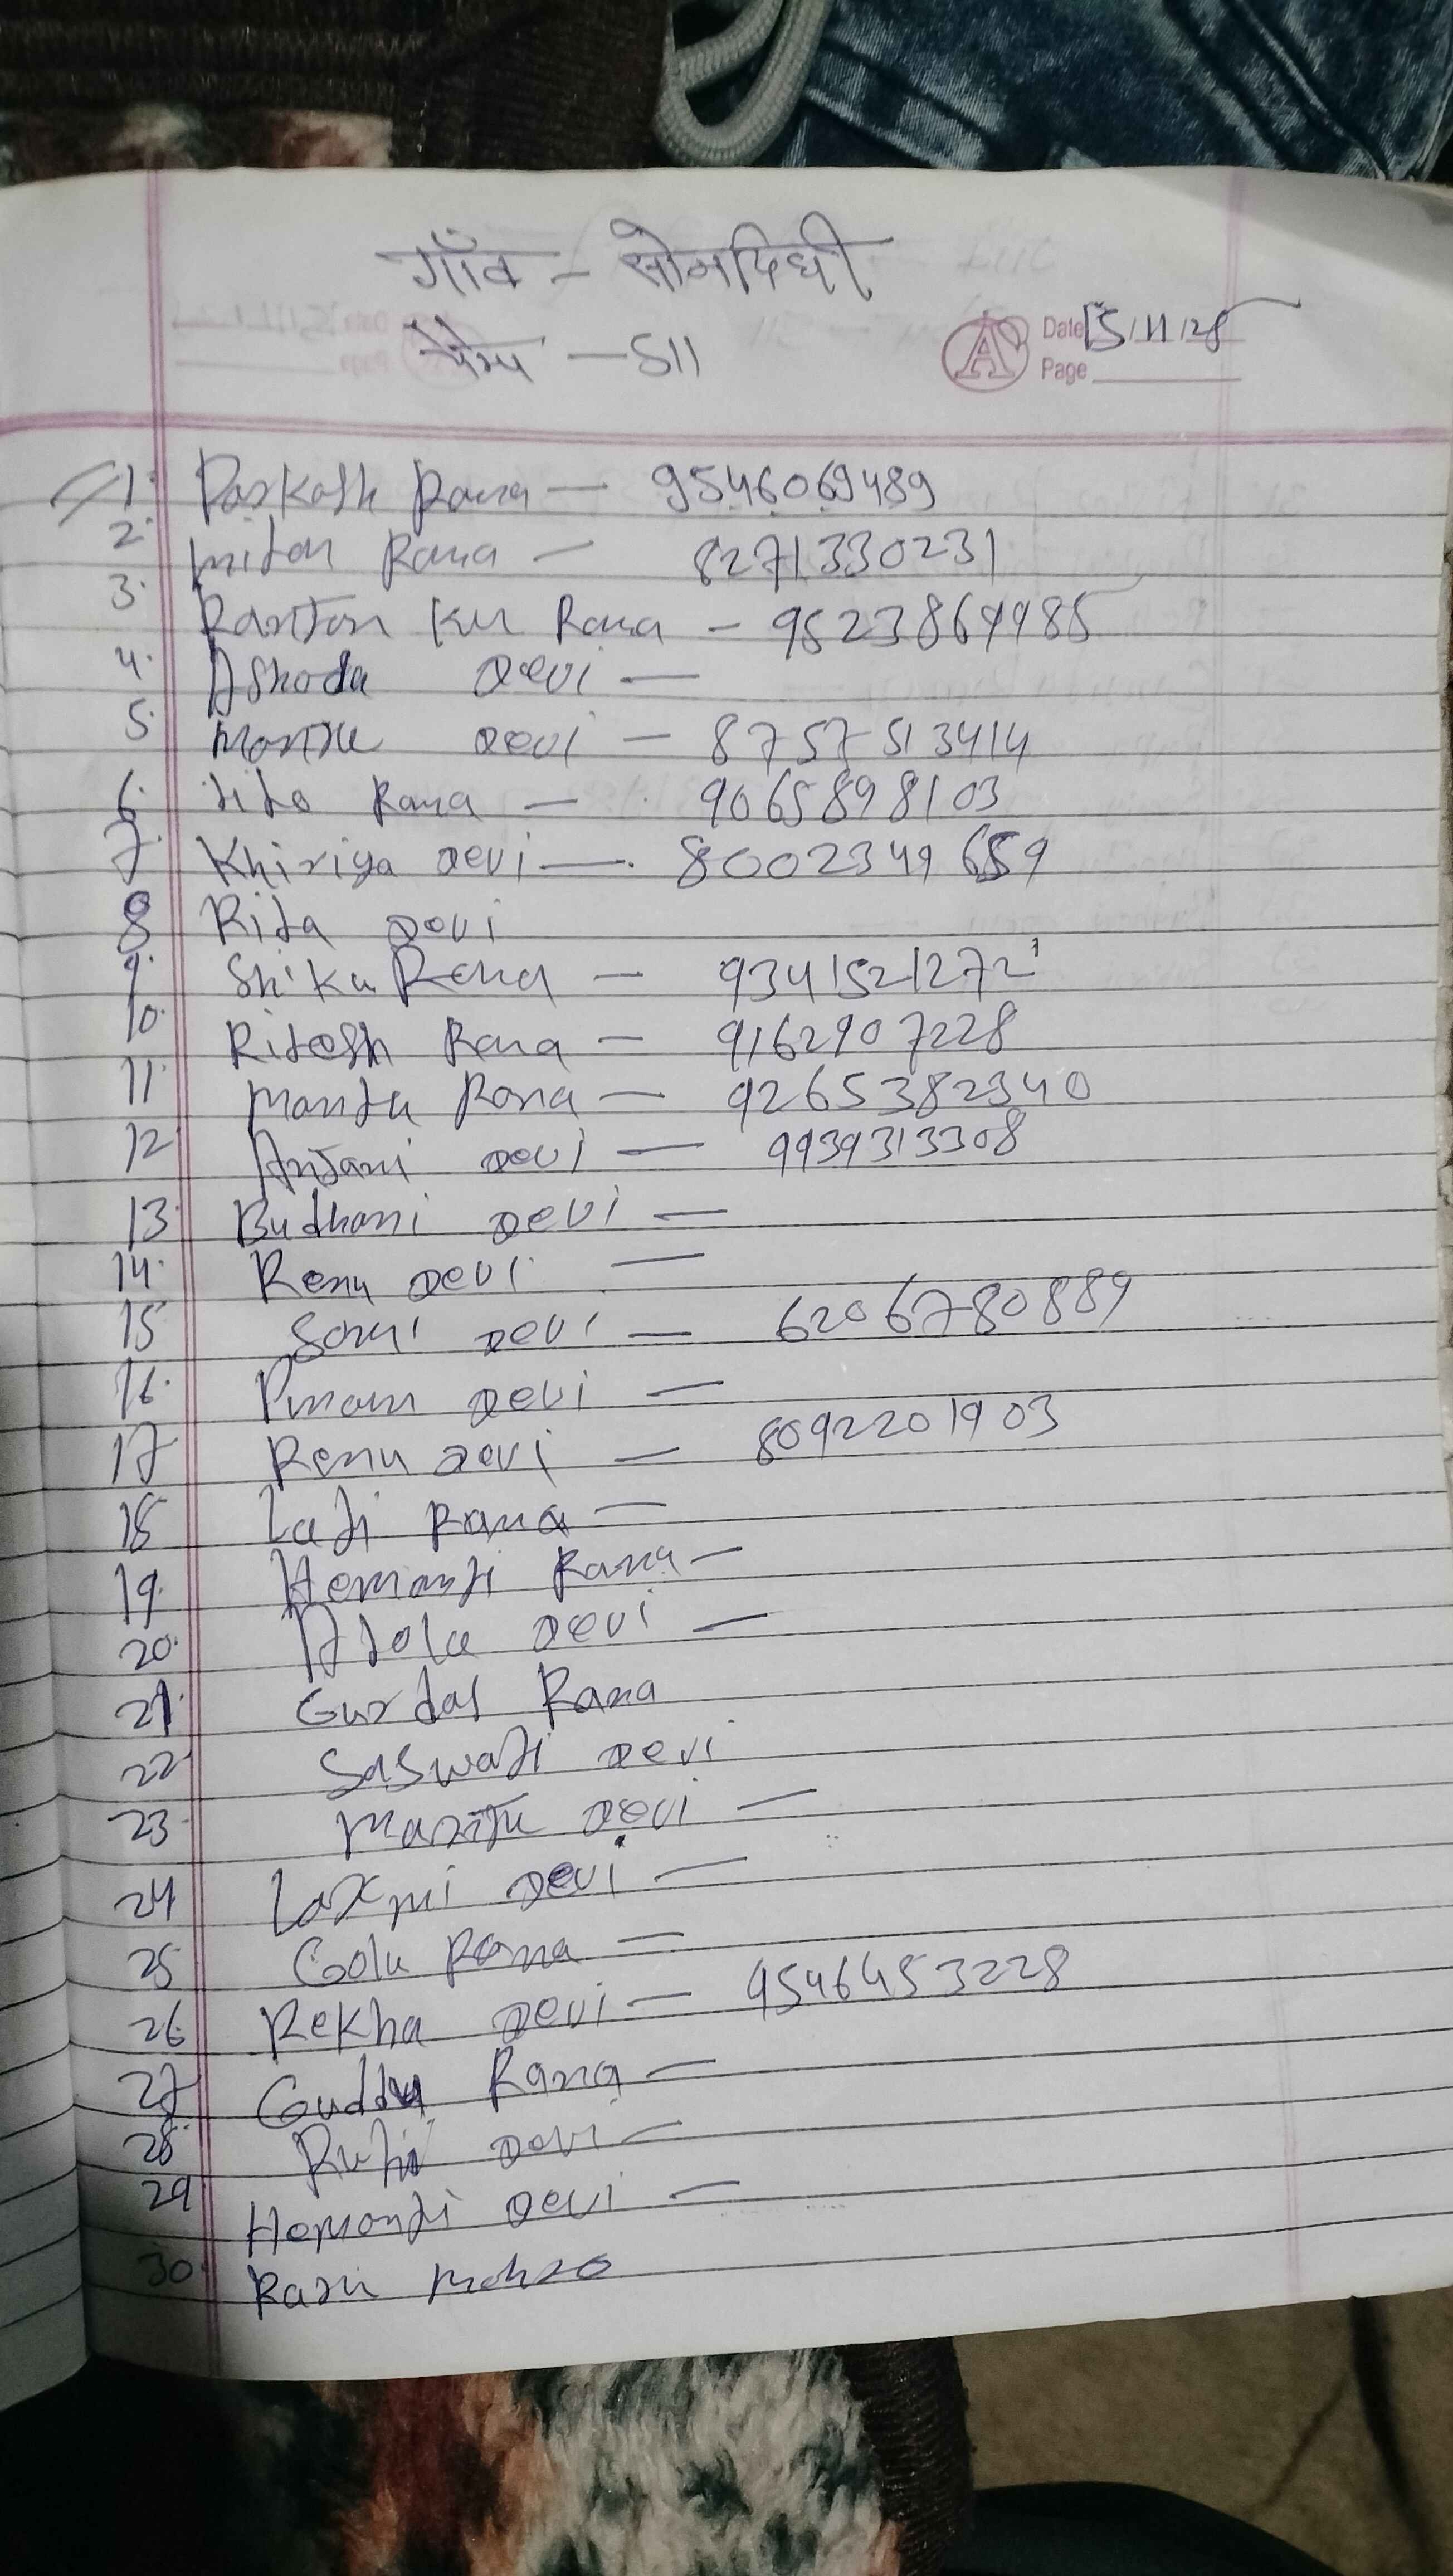 गाँव - सोनादिघी
कैम्प - 511
Date 15/11/25
Page
1. Parkash Rana - 9546069489
2. Mitan Rana - 8271330231
3. Ranjan Ku Rana - 9523864985
4. Ashoda Devi -
5. Manju Devi - 8757513414
6. Jito Rana - 9065898103
7. Khiriya Devi - 8002349659
8 Rita Devi
9. Shiku Rana - 9341521272
10. Ritesh Rana - 9162907228
11. Mantu Rana - 9265382340
12 Anjani Devi - 9939313308
13. Budhani Devi -
14. Renu Devi -
15 Soni Devi - 6206780889
16. Devi -
17 Renu Devi - 8092201903
18 Lati Rana -
19. Hemanti Rana -
20. Devi -
21. Gurdas Rana
22 Saswati Devi
23 Devi -
24 Laxmi Devi -
25 Golu Rana -
26 Rekha Devi - 9546453228
27 Guddu Rana -
28 Devi -
29 Hemanti Devi -
30.